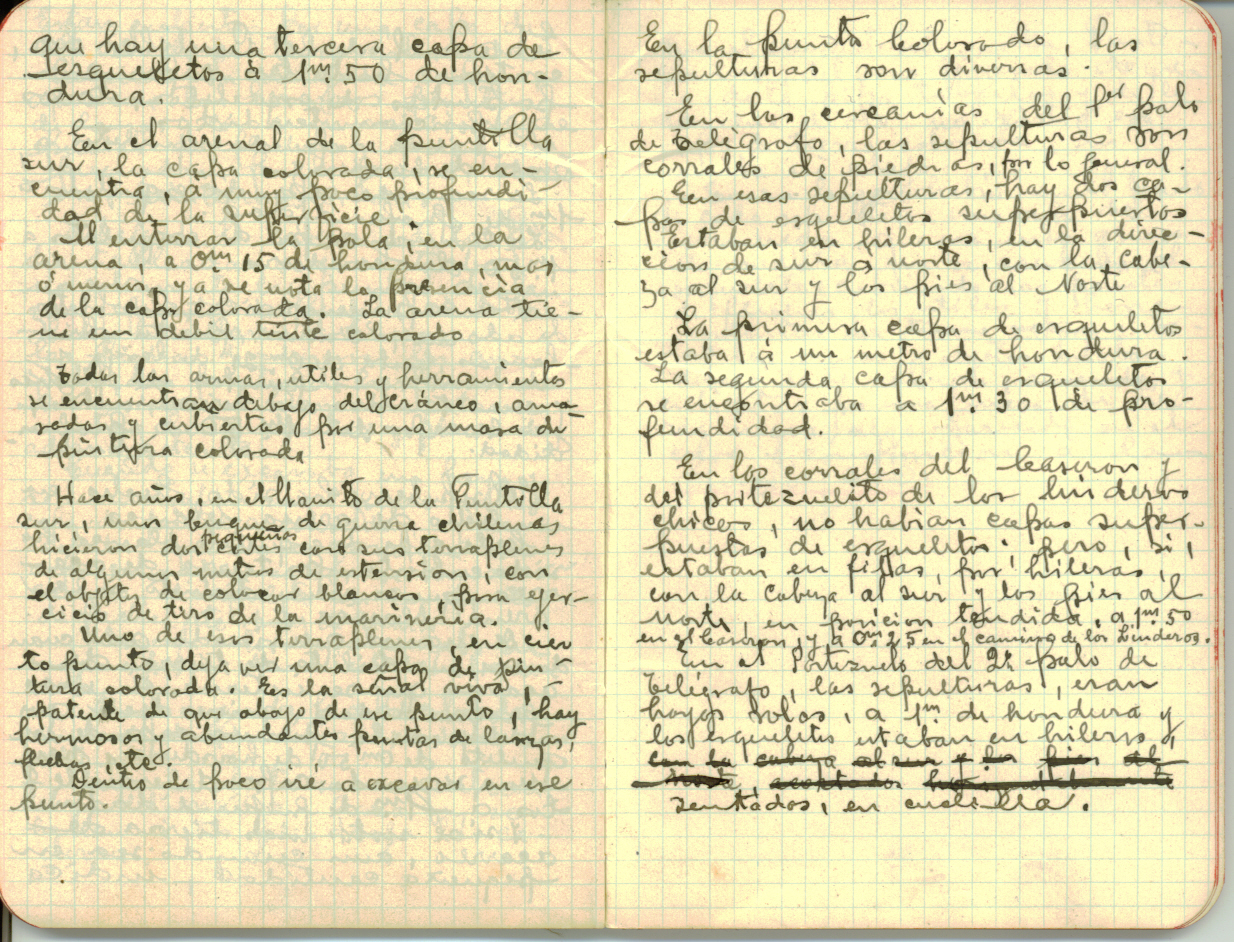 que hay una tercera capa de
esqueletos á 1m. 50 de hon-
dura.
En el arenal de la puntilla
sur, la capa colorada, se en-
cuentra, a muy poco profundi-
dad de la superficie.
Al enterrar la pala, en la
arena, a 0m 15 de hondura, mas
ó menos, ya se nota la presencia
de la capa colorada. La arena tie-
ne un debil tinte colorado
Todas las armas, utiles y herramientas
se encuentran debajo del cráneo, ama-
sadas y cubiertas por una masa de
pintura colorada
Hace años, en el llanito de la Puntilla
sur, unos buques de guerra chilenos
hicieron dos pequeños con sus terraplenes
de algunos metros de estension, con
el objeto de colocar blancos, para ejer-
cicio de tiro de la marineria.
Uno de esos terraplenes, en cier
to punto, deja ver una capa de pin-
tura colorada. Es la señal viva, -
patente de que abajo de ese punto, hay
hermosos y abundantes puntas de lanzas,
flechas, etc.
Dentro de poco iré a excavar en ese
punto.
En la punta Colorado, las
sepulturas son diversas.
En las cercanías del 1er palo
de telégrafo, las sepulturas son
corrales de piedras, por lo general.
En esas sepulturas, hay dos ca-
pas de esqueletos superpuestos
Estaban en hileras, en la direc-
cion de sur á norte, con la cabe-
za al sur y los pies al Norte
La primera capa de esqueletos
estaba á un metro de hondura.
La segunda capa de esqueletos
se encontraba a 1m 30 de pro-
fundidad.
En los corrales del Caseron y
del portezuelito de los linderos
chicos, no habían capas super-
puestas de esqueletos; pero, si,
estaban en filas, por hileras,
con la cabeza al sur y los pies al
norte, en posicion tendida, a 1m 50
en el Caseron, y a 0m 25 en el camino de los Linderos.
En el Portezuelo del 2º palo de
telégrafo, las sepulturas, eran
hoyos solos, a 1m. de hondura y
los esqueletos estaban en hileras,
con la cabeza al sur y los pies al
norte, acostados horizontalmente
sentados, en cuclilla.